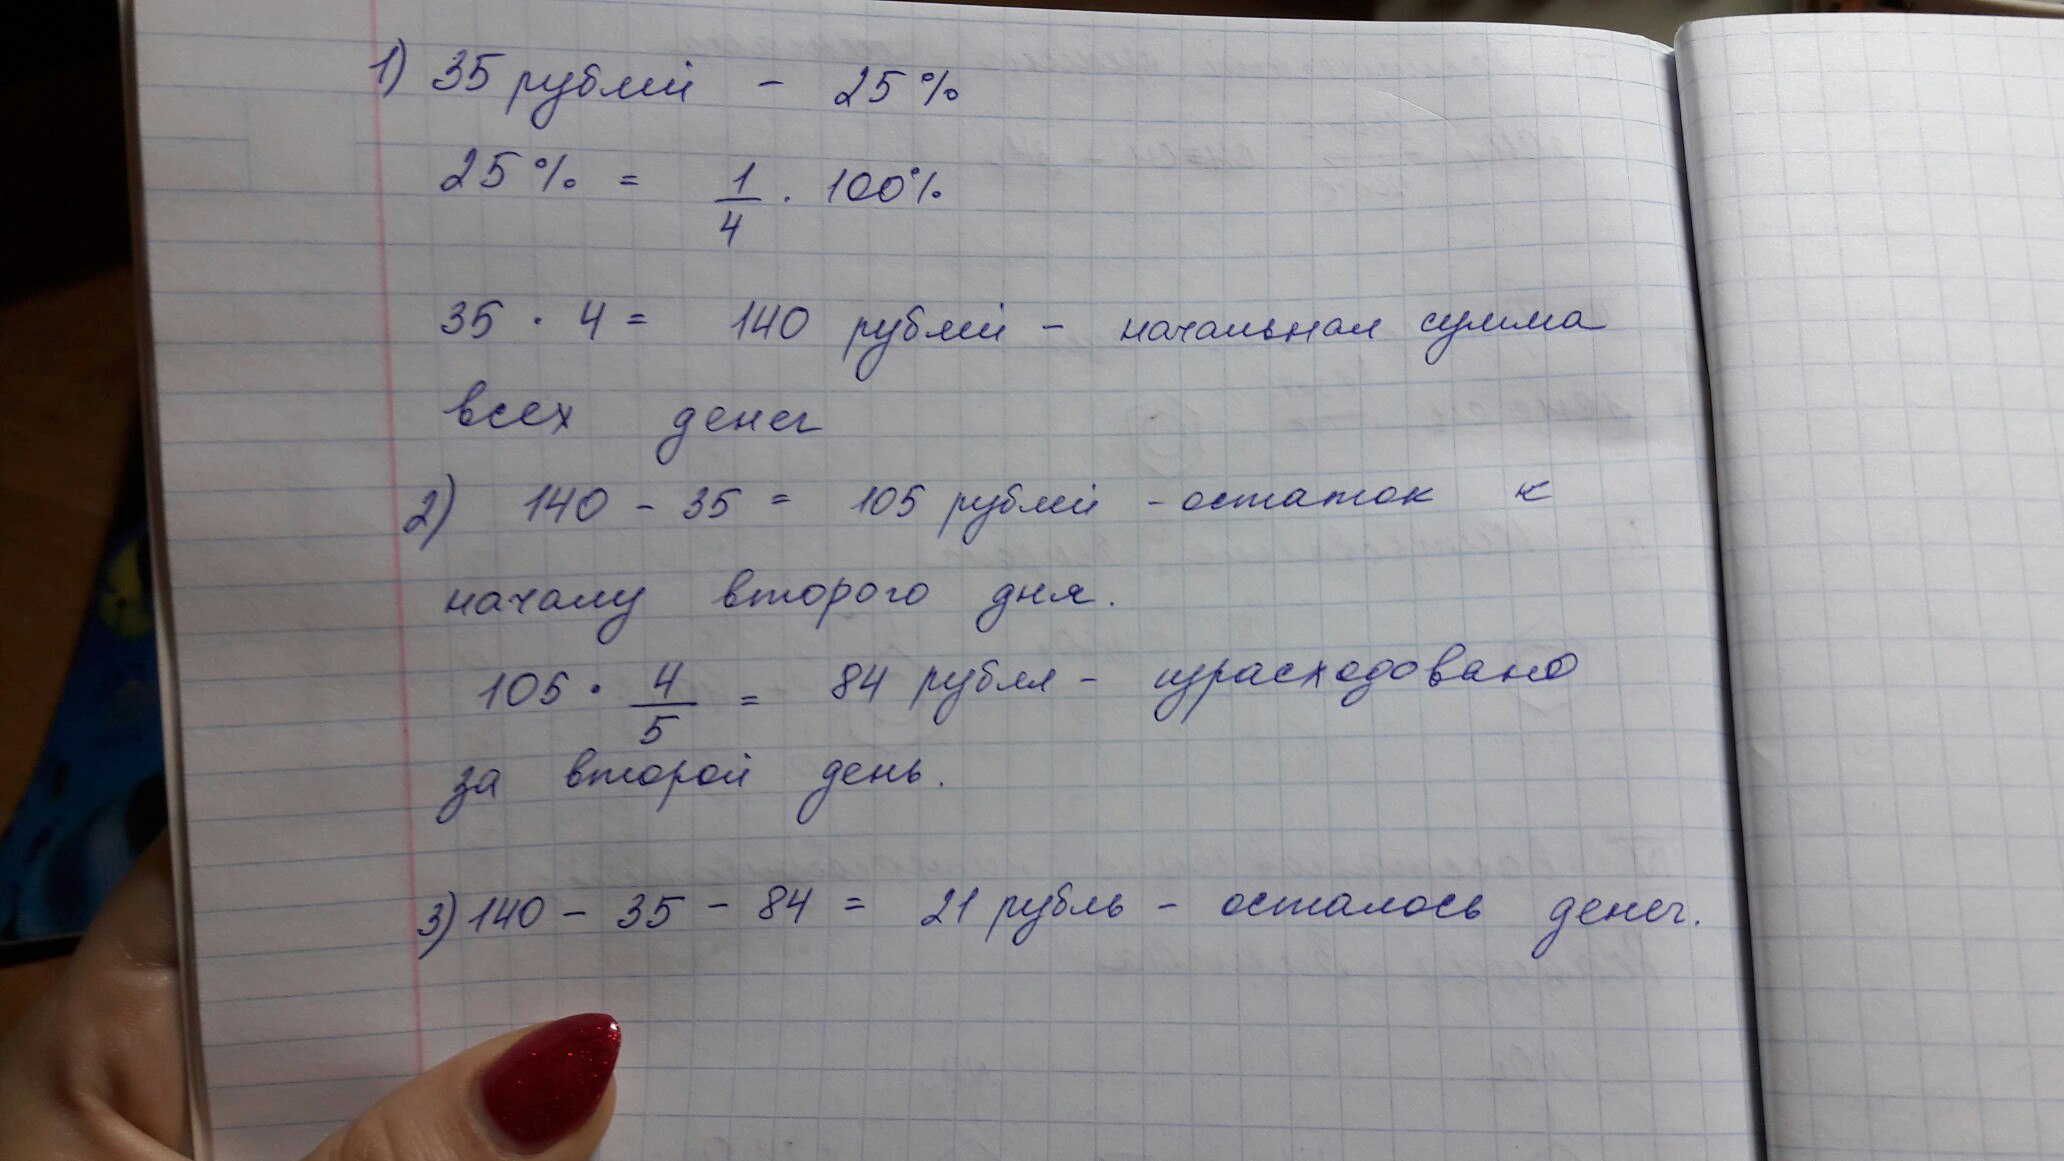 1) 35 рублей - 25%
25% = 1/4 · 100%
35 · 4 = 140 рублей - начальная сумма
всех денег
2) 140 - 35 = 105 рублей - остаток к
началу второго дня.
105 · 4/5 = 84 рубля - израсходовано
за второй день.
3) 140 - 35 - 84 = 21 рубль - осталось денег.